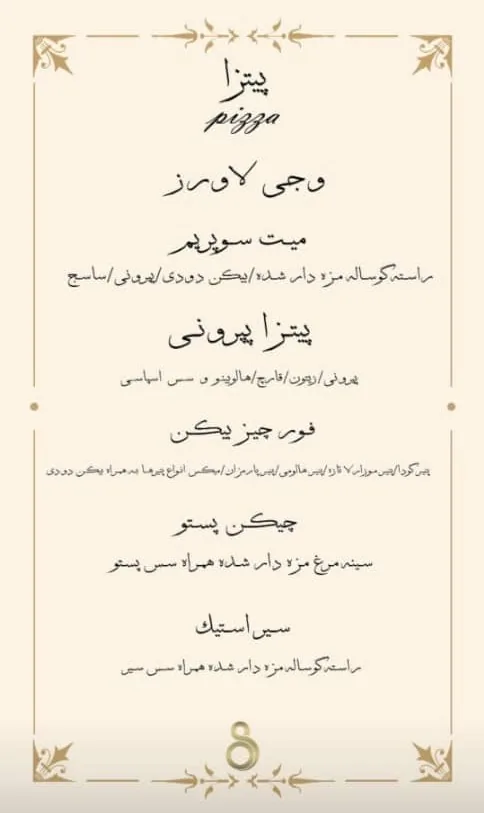 پیتزا
pizza
وجی لاورز
میت سوپریم
راسته گوساله مزه دار شده/بیکن دودی/پپرونی/ساسج
پیتزا پپرونی
پپرونی/زیتون/قارچ/هالوپینو و سس اسپاسی
فور چیز بیکن
پنیر گودا/پنیر موزارلا تازه/پنیر هالومی/پنیر پارمزان/میکس انواع پنیرها به همراه بیکن دودی
چیکن پستو
سینه مرغ مزه دار شده همراه سس پستو
سیر استیک
راسته گوساله مزه دار شده همراه سس سیر
8